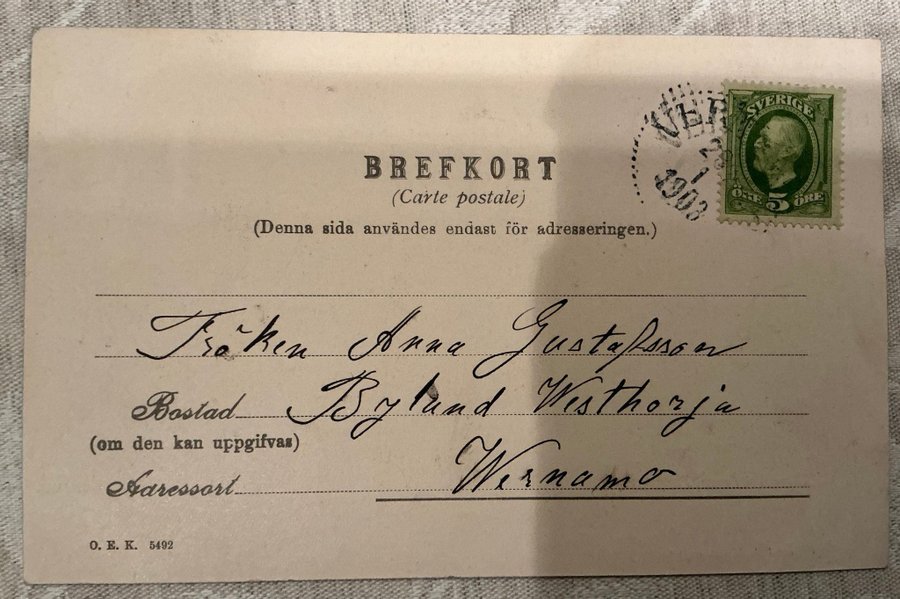 SVERIGE
VER
1
1903
5
ÖRE
BREFKORT
(Carte postale)
(Denna sida användes endast för adresseringen.)
Fröken Anna Gustafsson
Bostad Bylund Westhorja
(om den kan uppgifvas)
Adressort Wernamo
O. E. K. 5492